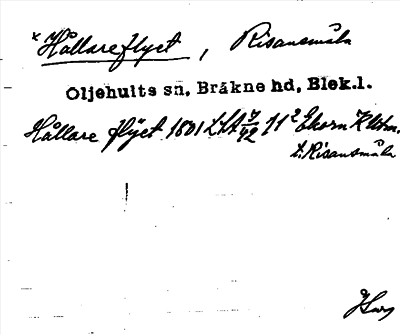 × Hållareflyet, Risansmåla
Oljehults sn, Bräkne hd, Blek.l.
Hållare flÿet 1801 LSA 7/42 11² Ekorn
t. Risansmåla